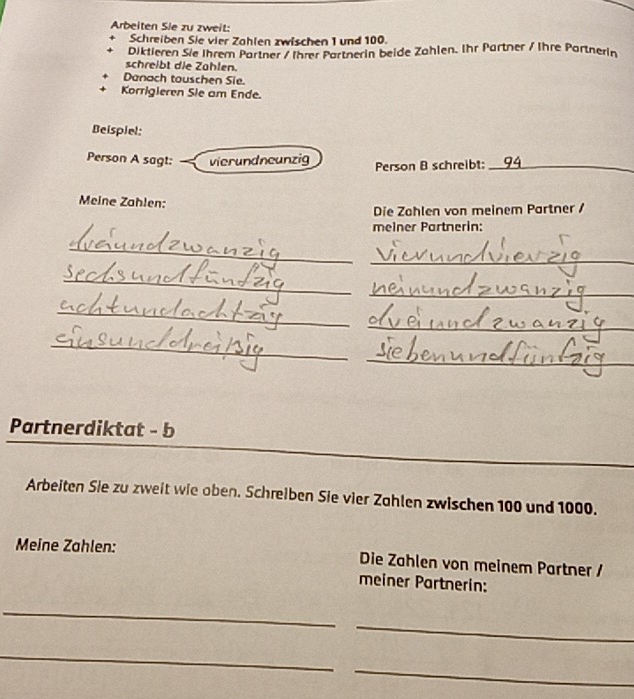 Arbeiten Sie zu zweit:
+ Schreiben Sie vier Zahlen zwischen 1 und 100.
+ Diktieren Sie Ihrem Partner / Ihrer Partnerin beide Zahlen. Ihr Partner / Ihre Partnerin
schreibt die Zahlen.
+ Danach tauschen Sie.
+ Korrigieren Sie am Ende.
Beispiel:
Person A sagt: vierundneunzig
Person B schreibt: 94
Meine Zahlen:
dreiundzwanzig
sechsundfünfzig
achtundachtzig
einsunddreißig
Die Zahlen von meinem Partner /
meiner Partnerin:
vierundvierzig
neinundzwanzig
dreiundzwanzig
siebenundfünfzig
Partnerdiktat - b
Arbeiten Sie zu zweit wie oben. Schreiben Sie vier Zahlen zwischen 100 und 1000.
Meine Zahlen:
Die Zahlen von meinem Partner /
meiner Partnerin: